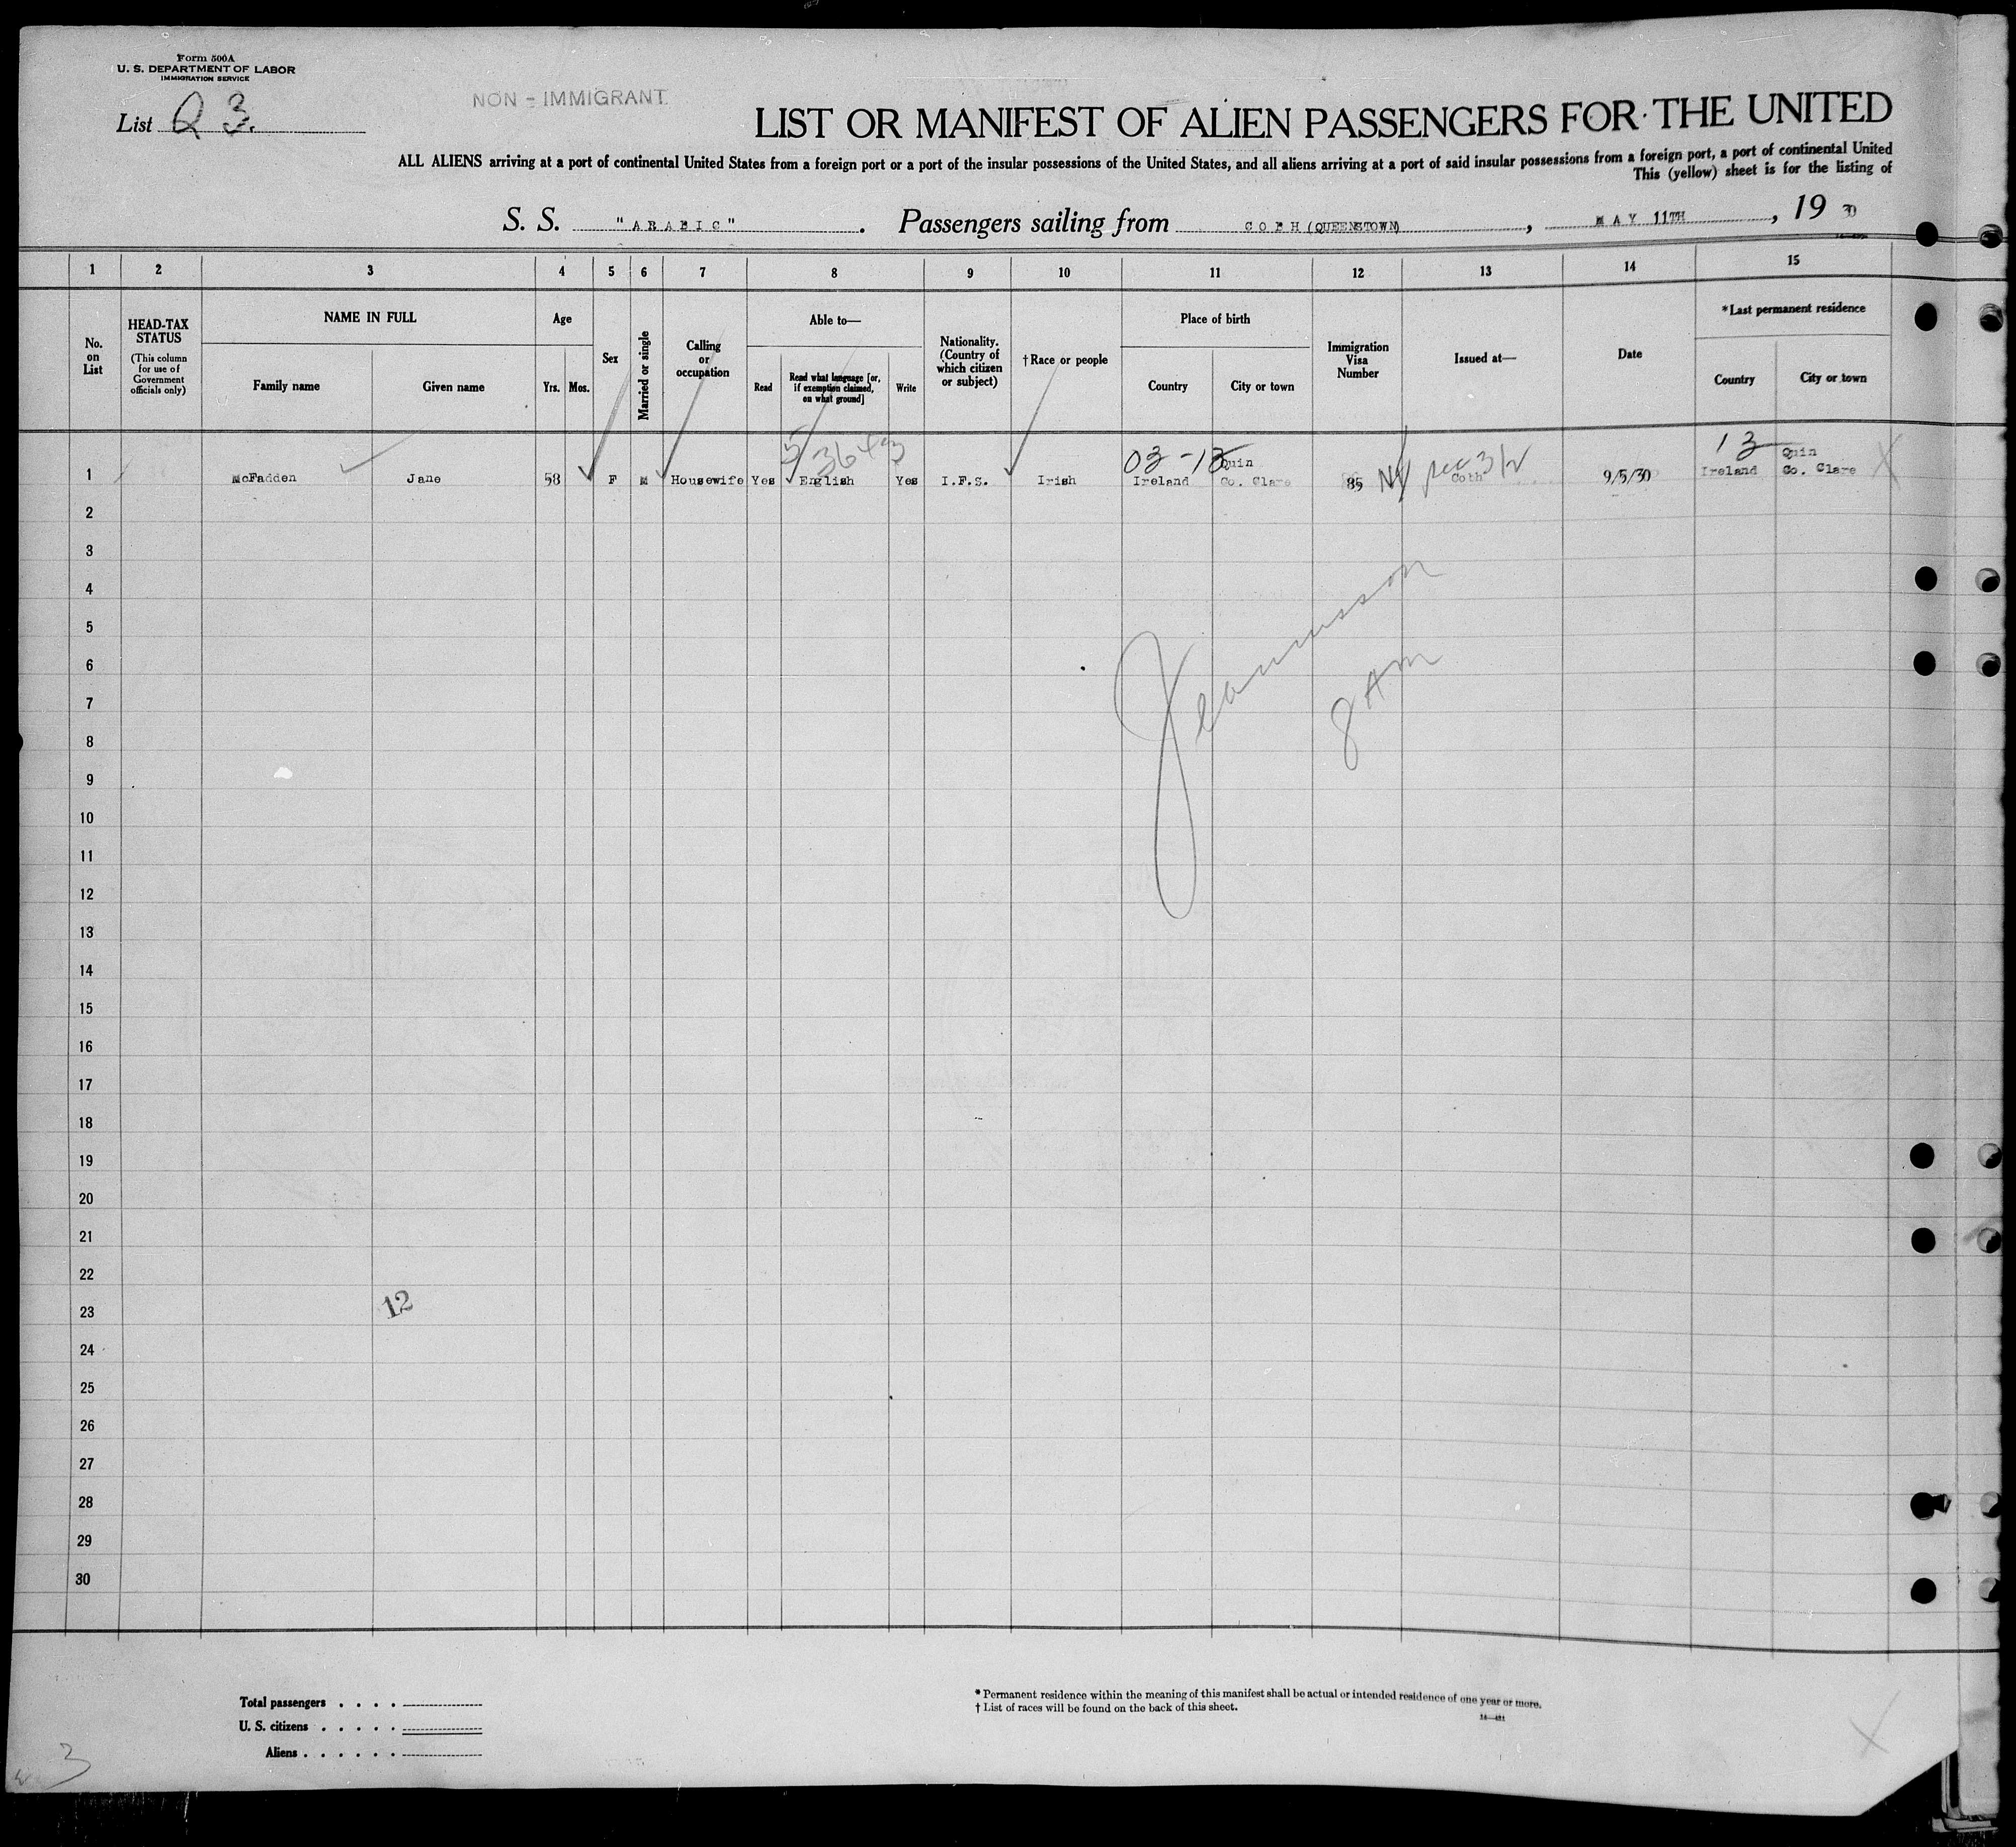 Form 500A
U. S. DEPARTMENT OF LABOR
IMMIGRATION SERVICE
NON - IMMIGRANT
List Q 3.
LIST OR MANIFEST OF ALIEN PASSENGERS FOR THE UNITED
ALL ALIENS arriving at a port of continental United States from a foreign port or a port of the insular possessions of the United States, and all aliens arriving at a port of said insular possessions from a foreign port, a port of continental United
This (yellow) sheet is for the listing of
S. S. "ARABIC". Passengers sailing from COBH (QUEENSTOWN), MAY 11TH, 19 30
1 2 3 4 5 6 7 8 9 10 11 12 13 14 15
No. on List
HEAD-TAX STATUS
(This column for use of Government officials only)
NAME IN FULL
Family name Given name
Age
Yrs. Mos.
Sex
Married or single
Calling or occupation
Able to—
Read
Read what language [or, if exemption claimed, on what ground]
Write
Nationality. (Country of which citizen or subject)
†Race or people
Place of birth
Country City or town
Immigration Visa Number
Issued at—
Date
*Last permanent residence
Country City or town
5/3643
03-13
13
1 McFadden Jane 58 F M Housewife Yes English Yes I.F.S. Irish Ireland Quin Co. Clare 85 NY Cobh 9/5/30 Ireland Quin Co. Clare X
2
3
4
5
6
7
8
8 AM
9
10
11
12
13
14
15
16
17
18
19
20
21
22
23
12
24
25
26
27
28
29
30
Total passengers . . . .
U. S. citizens . . . . .
Aliens . . . . . .
* Permanent residence within the meaning of this manifest shall be actual or intended residence of one year or more.
† List of races will be found on the back of this sheet.
X
3